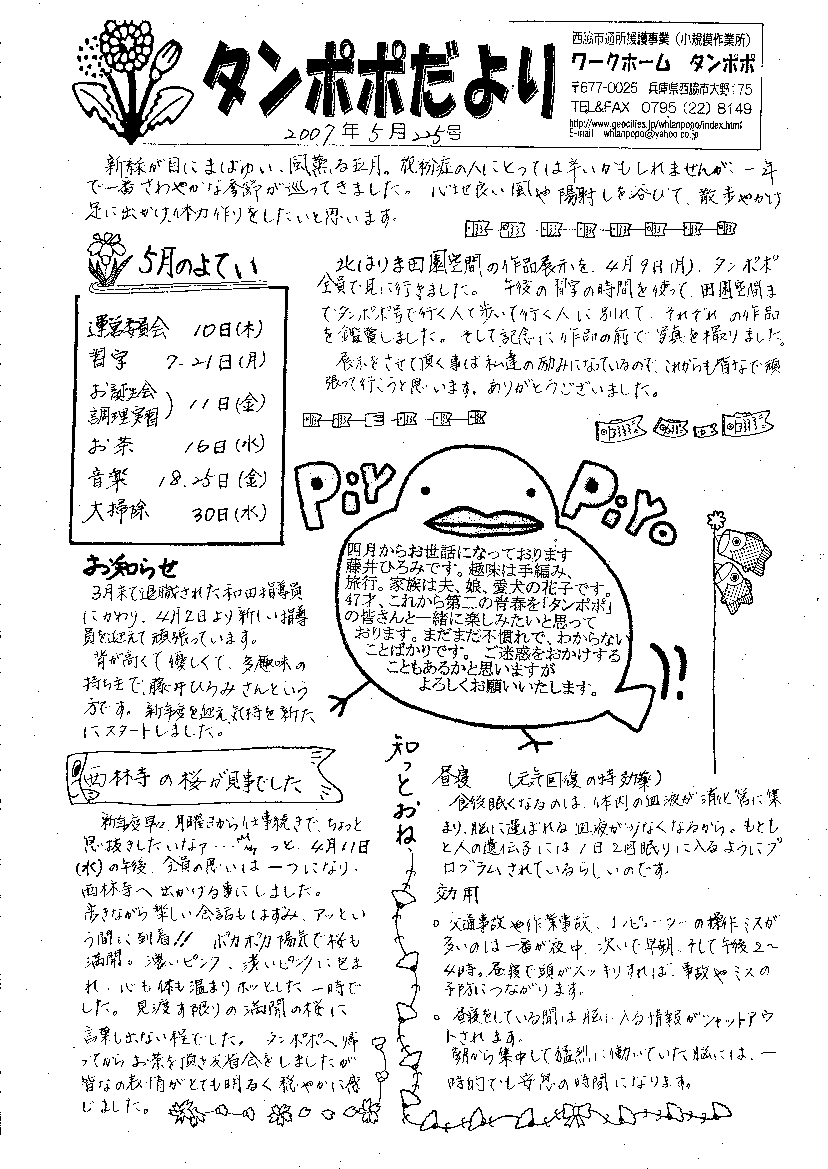 タンポポだより
西脇市通所援護事業（小規模作業所）
ワークホーム　タンポポ
〒677-0025　兵庫県西脇市大野175
TEL&FAX　0795（22）8149
http://www.geocities.jp/whtanpopo/index.html
E-mail　whtanpopo@yahoo.co.jp
2007年5月225号
新緑が目にまばゆい、風薫る五月。花粉症の人にとっては辛いかもしれませんが、一年
で一番さわやかな季節が巡ってきました。心地良い風や陽射しを浴びて、散歩やかけ
足に出かけ体力作りをしたいと思います。
5月のよてい
運営委員会　10日(木)
習字　7.21日(月)
お誕生会
調理実習）11日(金)
お茶　16日(水)
音楽　18.25日(金)
大掃除　30日(水)
北はりま田園空間の作品展示を、4月9日(月)、タンポポ
全員で見に行きました。午後の習字の時間を使って、田園空間ま
でタンポポ号で行く人と歩いて行く人に別れて、それぞれの作品
を鑑賞しました。そして記念に作品の前で写真を撮りました。
展示をさせて頂く事は私達の励みになっているので、これからも皆なで頑
張って行こうと思います。ありがとうございました。
Piy Piyo
四月からお世話になっております
藤井ひろみです。趣味は手編み、
旅行。家族は夫、娘、愛犬の花子です。
47才、これから第二の青春を「タンポポ」
の皆さんと一緒に楽しみたいと思って
おります。まだまだ不慣れで、わからない
ことばかりです。ご迷惑をおかけする
こともあるかと思いますが
よろしくお願いいたします。
お知らせ
3月末で退職された和田指導員
にかわり、4月2日より新しい指導
員を迎えて頑張っています。
背が高くて優しくて、多趣味の
持ち主で、藤井ひろみさんという
方です。新年度を迎え気持を新た
にスタートしました。
西林寺の桜が見事でした
新年度早々、月曜日から仕事続きで、ちょっと
息抜きしたいなァ…っと、4月11日
(水)の午後、全員の思いは一つになり、
西林寺へ出かける事にしました。
歩きながら楽しい会話もはずみ、アッとい
う間に到着!!　ポカポカ陽気で桜も
満開。濃いピンク、淡いピンクに包ま
れ、心も体も温まりホッとした一時で
した。見渡す限りの満開の桜に
言葉も出ない程でした。タンポポへ帰
ってからお茶を頂き反省会をしましたが
皆なの表情がとても明るく穏やかに感
じました。
知っとおね
昼寝　（元気回復の特効薬）
食後眠くなるのは、体内の血液が消化管に集
まり、脳に運ばれる血液が少なくなるから。もとも
と人の遺伝子には1日2回眠りに入るようにプ
ログラムされているらしいのです。
効用
○ 交通事故や作業事故、コンピューターの操作ミスが
多いのは一番が夜中、次いで早朝、そして午後2～
4時。昼寝で頭がスッキリすれば、事故やミスの
予防につながります。
○ 昼寝をしている間は脳に入る情報がシャットアウ
トされます。
朝から集中して猛烈に働いていた脳には、一
時的でも安息の時間になります。